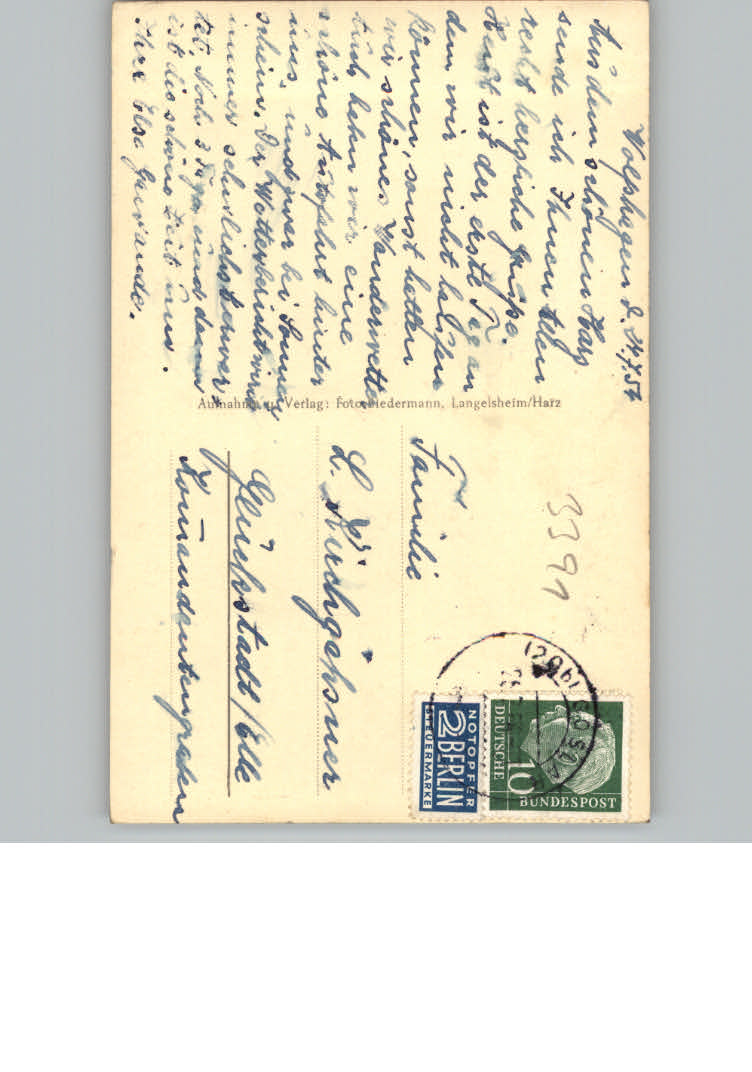 Wolfshagen d. 24.7.54
Aus dem schönen Harz
sende ich Ihnen allen
recht herzliche Grüße.
Heut ist der erste Tag an
dem wir nicht laufen
können, sonst hatten
wir schönes Wanderwetter
auch haben wir eine
schöne Autofahrt hinter
uns und zwar bei Sonnen
schein. Der Wetterbericht wird
immer schlechter erwar-
tet. Noch 3 Tage und dann
ist die schöne Zeit um.
Ihre Elsa
Aufnahme u. Verlag: Foto-Niedermann, Langelsheim/Harz
Familie
L. Kirchgeßner
Glückstadt/Elbe
Komandantengraben
3391
GOSLAR
NOTOPFER
2 BERLIN
STEUERMARKE
DEUTSCHE
10
BUNDESPOST